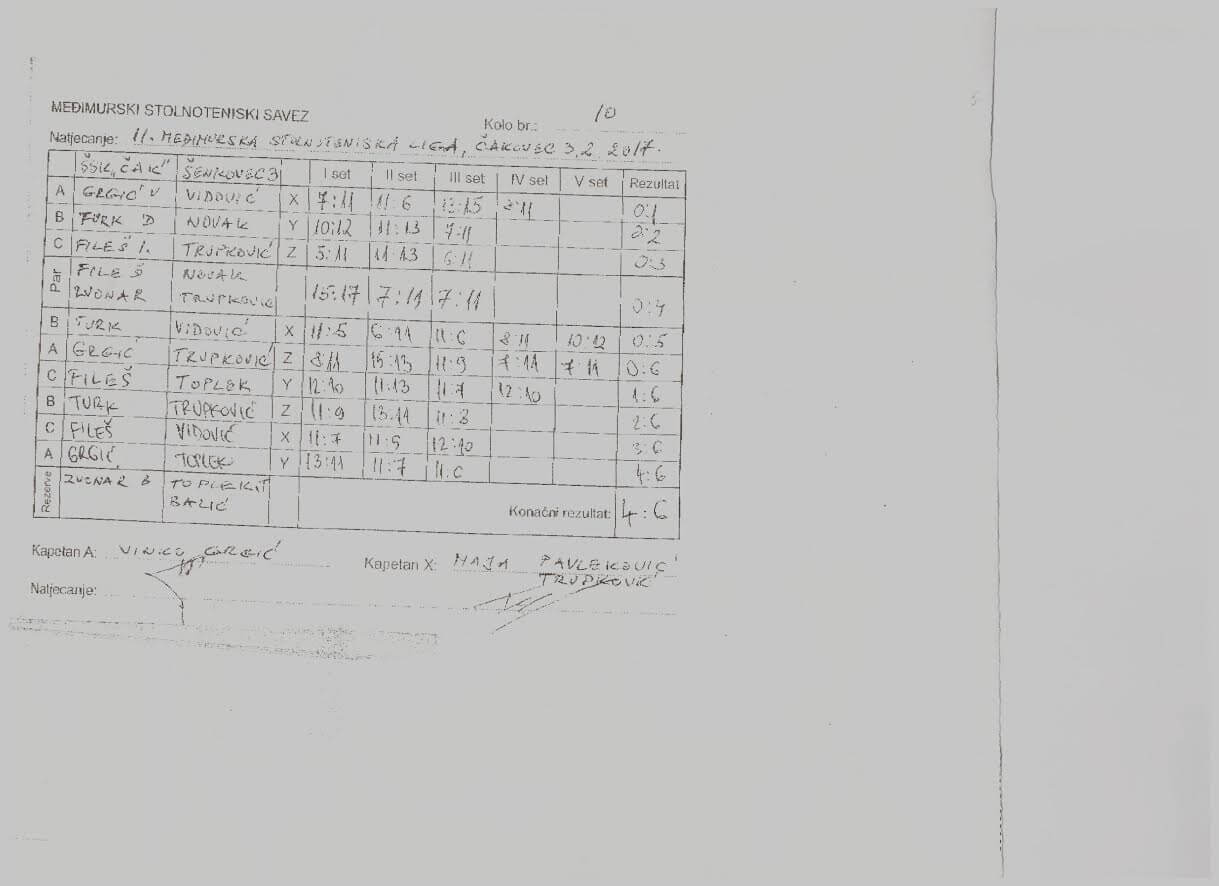 MEĐIMURSKI STOLNOTENISKI SAVEZ
Kolo br.: 10
Natjecanje: II. MEĐIMURSKA STOLNOTENISKA LIGA, ČAKOVEC 3,2 2017.
ŠŠK „ČAK" ŠENKOVEC 3 I set II set III set IV set V set Rezultat
A GRGIĆ V VIDOVIĆ X 7:11 11:6 13:15 0:1
B TURK D NOVAK Y 10:12 11:13 7:11
C FILEŠ I. TRUPKOVIĆ Z 5:11 11:13 6:11 0:3
Par FILEŠ NOVAK
ZVONAR TRUPKOVIĆ 15:17 7:11 7:11 0:4
B TURK VIDOVIĆ X 11:5 6:11 11:6 8:11 10:12 0:5
A GRGIĆ TRUPKOVIĆ Z 8:11 15:13 11:9 7:11 7:11 0:6
C FILEŠ TOPLEK Y 12:10 11:13 11:7 12:10 1:6
B TURK TRUPKOVIĆ Z 11:9 13:11 11:8 2:6
C FILEŠ VIDOVIĆ X 11:7 11:5 12:10 3:6
A GRGIĆ TOPLEK Y 13:11 11:7 4:6
Rezerve ZVONAR B TOPLEK T
BALIĆ
Konačni rezultat: 4:6
Kapetan A: VINKO GRGIĆ
Kapetan X: MAJA PAVLEKOVIĆ
TRUPKOVIĆ
Natjecanje: